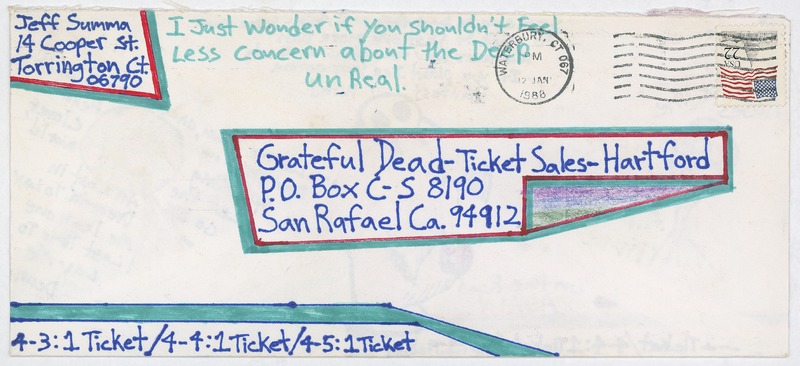 Jeff Summa
14 Cooper St.
Torrington Ct.
06790
I Just Wonder if You Shouldn't Feel
Less Concern about the Deep
unReal.
WATERBURY, CT 067
PM
12 JAN
1988
USA
22
Grateful Dead-Ticket Sales-Hartford
P.O. Box C-S 8190
San Rafael Ca. 94912
4-3:1 Ticket/4-4:1Ticket/4-5:1Ticket